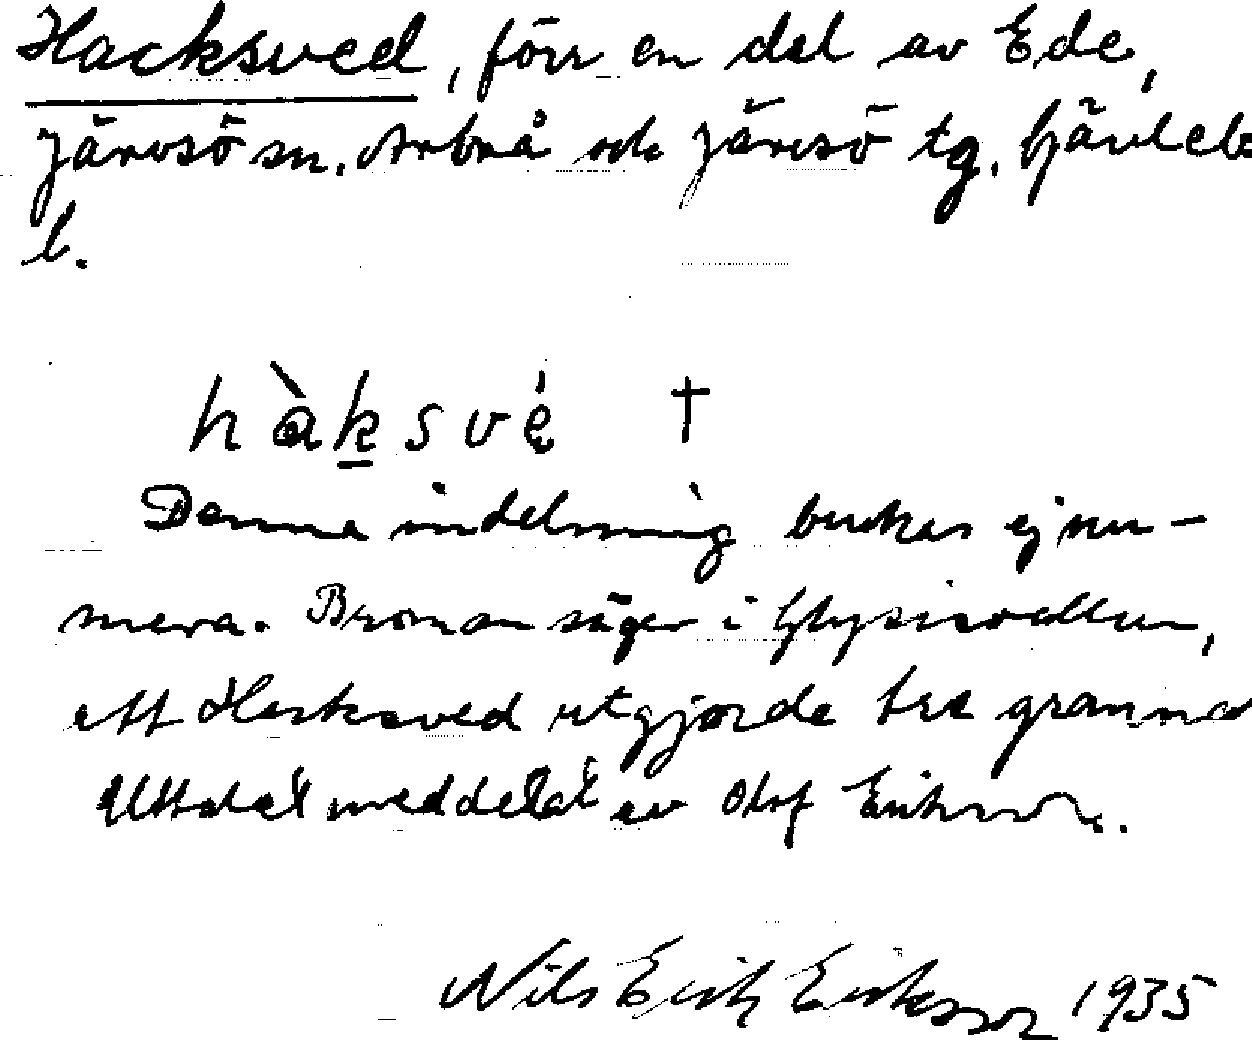 Hacksved, förr en del av Ede,
Järvsö sn. Arbrå och Järvsö tg. Gävleb.
l.
hàksvé †
Denna indelning brukas ej nu-
mera. Broman säger i Glysisvallur,
att Hacksved utgjorde tre grannar
Uttalet meddelat av Olof Eriksson.
Nils Erik Eriksson 1935